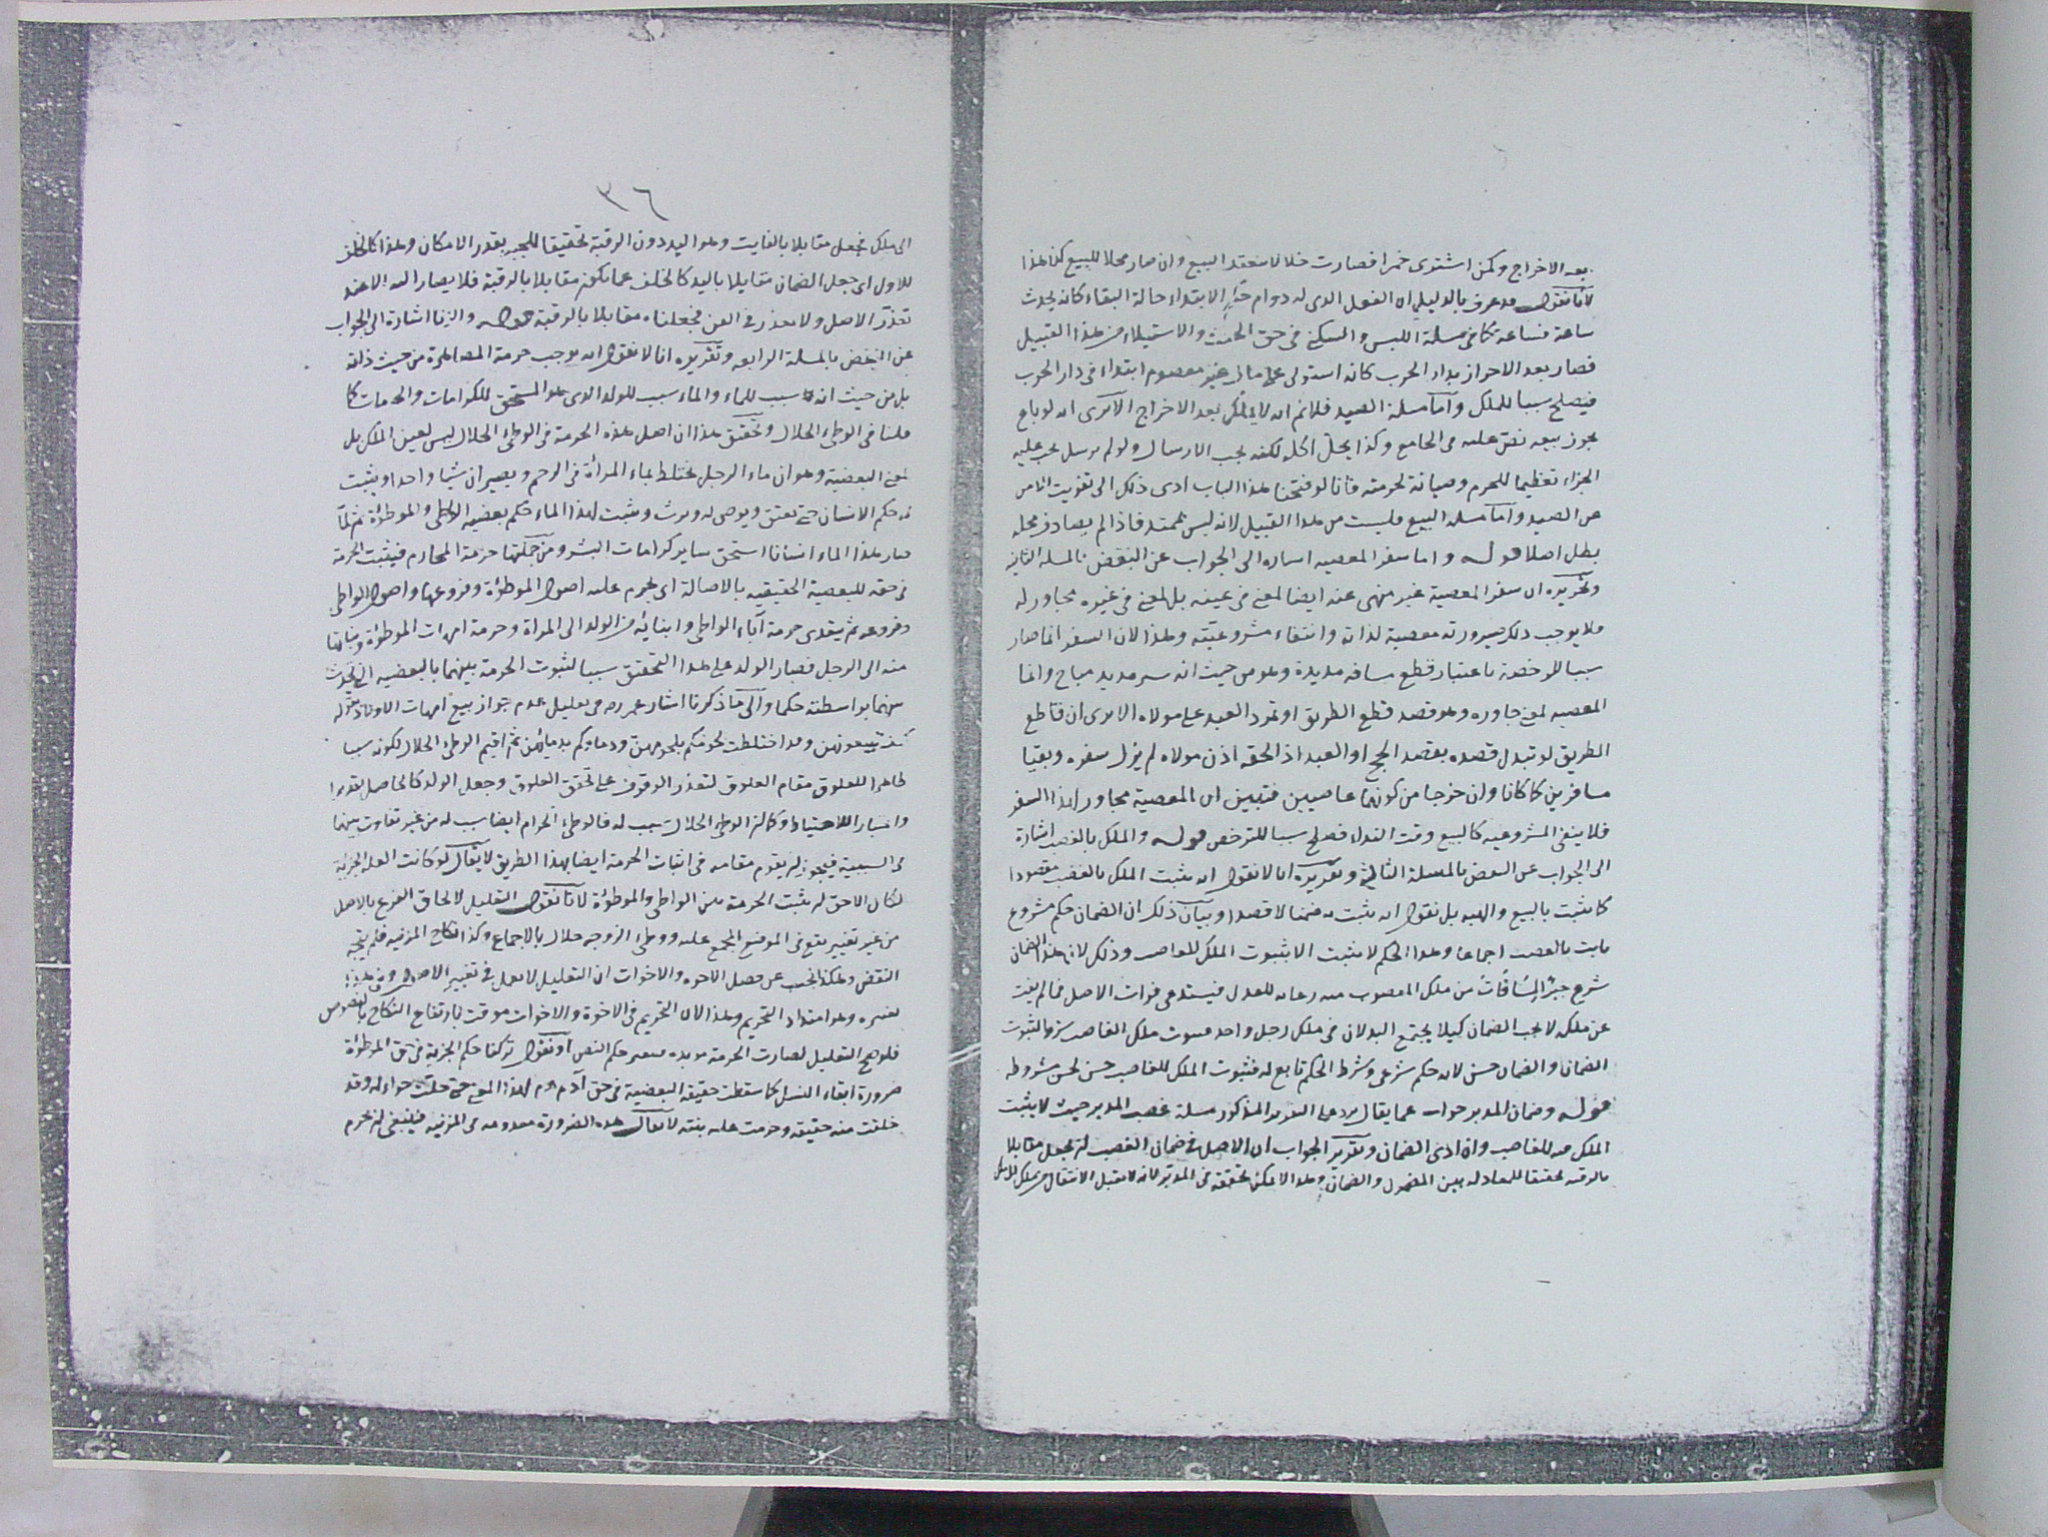 بعد الاخراج وكمن اشترى خمرا فصارت خلا لا ينعقد البيع وان صار محلا للبيع كذا هذا
لأنا نقول قد عرف بالدليل ان الفعل الذى له دوام حكم الابتداء حالة البقاء كانه يحدث
ساعة فساعة كما فى مسئلة اللبس والسكنى فى حق الحنث والاستيلاء من هذا القبيل
فصار بعد الاحراز بدار الحرب كانه استولى على مال غير معصوم ابتداء فى دار الحرب
فيصلح سببا للملك وأما مسئلة الصيد فلانم انه لا يملك بعد الاخراج الا يرى انه لو باع
يجوز بيعه نص عليه فى الجامع وكذا يحل اكله لكنه يجب الارسال ولو لم يرسل يجب عليه
الجزاء تعظيما للحرم وصيانة لحرمته فانا لو فتحنا هذا الباب ادى ذلك الى تفويت الامن
عن الصيد وأما مسئلة البيع فليست من هذا القبيل لانه ليس بممتد فاذا لم يصادف محله
بطل اصلا قوله واما سفر المعصيه اشاره الى الجواب عن النقض بالمسئلة الثانيه
وتقريره ان سفر المعصية غير منهى عنه ايضا لمعنى فى عينه بل لمعنى فى غيره مجاور له
فلا يوجب ذلك صيرورته معصية لذاته وانتفاء مشروعيته وهذا لان السفر انما صار
سببا للرخصة باعتبار قطع مسافه مديدة وهو من حيث انه سير مديد مباح وانما
المعصيه لمعنى جاوره وهو قصد قطع الطريق او تمرد العبد على مولاه الا يرى ان قاطع
الطريق لو تبدل قصده بقصد الحج او العبد اذا لحقه اذن مولاه لم يزل سفره وبقيا
مسافرين كما كانا وان خرجا من كونهما عاصيين فتبين ان المعصية مجاور لهذا السفر
فلا ينفى المشروعيه كالبيع وقت النداء فصلح سببا للترخص قوله والملك بالغصب اشارة
الى الجواب عن النقض بالمسئلة الثالثة وتقريره انا لا نقول انه يثبت الملك بالغصب مقصودا
كما يثبت بالبيع والهبه بل نقول انه يثبت به ضمنا لا قصدا وبيان ذلك ان الضمان حكم مشروع
ثابت بالغصب اجماعا وهذا الحكم لا يثبت الا بثبوت الملك للغاصب وذلك لان هذا الضمان
شرع جبرا لما فات من ملك المغصوب منه رعاية للعدل فيستدعى فوات الاصل فما لم يفت
عن ملكه لا يجب الضمان كيلا يجتمع البدلان فى ملك رجل واحد فثبوت ملك الغاصب شرط لثبوت
الضمان والضمان حسن لانه حكم شرعى وشرط الحكم تابع له فثبوت الملك للغاصب حسن لحسن مشروطه
قوله وضمان المدبر جواب عما يقال يرد على التقرير المذكور مسئلة غصب المدبر حيث لا يثبت
الملك فيه للغاصب وان ادى الضمان وتقرير الجواب ان الاصل فى ضمان الغصب ان يجعل مقابلا
بالرقبه تحقيقا للمعادلة بين المضمون والضمان وهذا لا يمكن تحقيقه فى المدبر لانه لا يقبل الانتقال من ملك
٣٦
الى ملك فجعل مقابلا بالفايت وهو اليد دون الرقبة تحقيقا للجبر بقدر الامكان وهذا كالخلف
للاول اى جعل الضمان مقابلا باليد كالخلف عما يكون مقابلا بالرقبة فلا يصار اليه الا عند
تعذر الاصل ولا تعذر فى القن فجعلناه مقابلا بالرقبة قوله والزنا اشارة الى الجواب
عن النقض بالمسئلة الرابعه وتقريره انا لا نقول انه يوجب حرمة المصاهرة من حيث ذاته
بل من حيث انه سبب للماء والماء سبب للولد الذى هو المستحق للكرامات والحرمات كما
قلنا فى الوطئ الحلال وتحقيق هذا ان اصل هذه الحرمة فى الوطئ الحلال ليس لعين الملك بل
لمعنى البعضية وهو ان ماء الرجل يختلط بماء المرأة فى الرحم ويصيران شيا واحدا ويثبت
له حكم الانسان حتى يعتق ويوصى له ويورث ويثبت لهذا الماء حكم بعضية الواطى والموطؤة ثم لما
صار هذا الماء انسانا استحق ساير كرامات البشر ومن جملتها حرمة المحارم فيثبت الحرمة
فى حقه للبعضية الحقيقيه بالاصالة اى يحرم عليه اصول الموطؤة وفروعها واصول الواطى
وفروعه ثم يتعدى حرمة آباء الواطى وابنائه من الولد الى المراة وحرمة امهات الموطؤة وبناتها
منه الى الرجل فصار الولد على هذا التحقيق سببا لثبوت الحرمة بينهما بالبعضيه التى تحدث
بينهما بواسطته حكما والى ما ذكرنا اشار عمر رضه فى تعليل عدم جواز بيع امهات الاولاد بقوله
كيف تبيعونهن وقد اختلطت لحومكم بلحومهن ودماؤكم بدمائهن ثم اقيم الوطئ الحلال لكونه سببا
ظاهرا للعلوق مقام العلوق لتعذر الوقوف على تحقق العلوق وجعل الولد كالحاصل تقديرا
واعتبارا للاحتياط وكما ان الوطئ الحلال سبب له فالوطئ الحرام ايضا سبب له من غير تفاوت بينهما
فى السببية فيجوز ان يقوم مقامه فى اثبات الحرمة ايضا بهذا الطريق لا يقال لو كانت العلة الجزئية
لكان الاحق ان يثبت الحرمة بين الواطى والموطؤة لانا نقول التعليل لالحاق الفرع بالاصل
من غير تغيير يقع فى الموضع المجمع عليه ووطئ الزوجه حلال بالاجماع وكذا نكاح المزنيه فلم يتجه
النقض وهكذا نجيب عن فصل الاخوه والاخوات ان التعليل لا يعمل فى تغيير الاصول وفى هذا
تغييره وهو امتداد التحريم وهذا لان التحريم فى الاخوة والاخوات موقت بارتفاع النكاح بالنصوص
فلو صح التعليل لصارت الحرمة مؤبده فيتغير حكم النص او نقول تركنا حكم الجزئية فى حق الموطؤة
ضرورة ابقاء النسل كما سقطت حقيقة البعضية فى حق آدم عم لهذا المعنى حتى حلت حواء له وقد
خلقت منه حقيقه وحرمت عليه بنته لا يقال هذه الضرورة معدومه فى المزنيه فينبغى ان يحرم